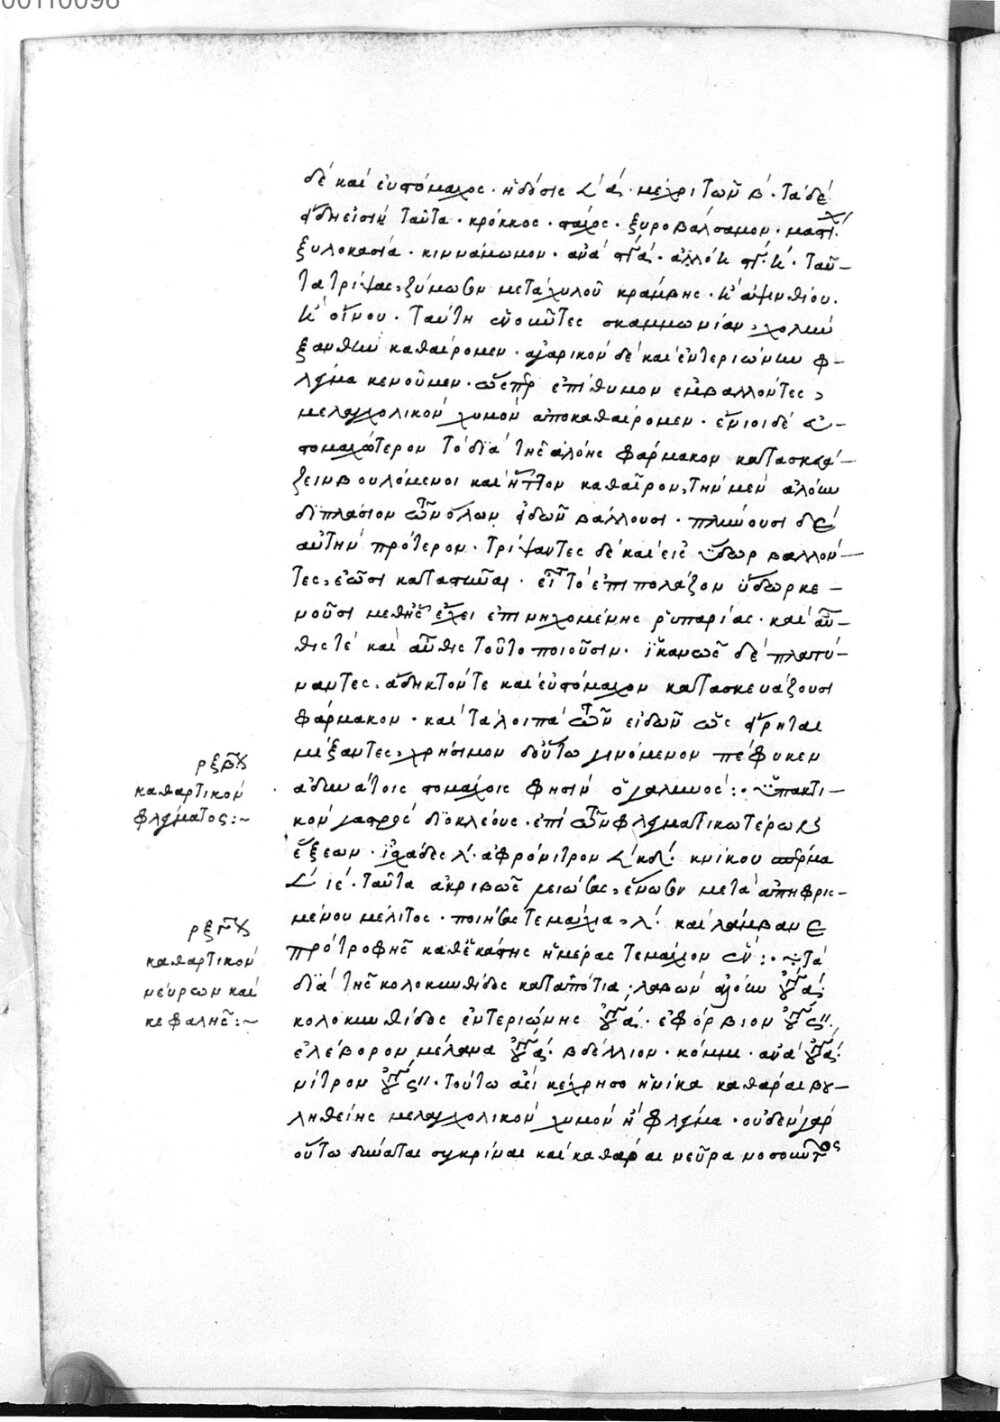 00110096
δὲ καὶ εὐστόμαχος · ἡ δόσις 𐅻 ά · μέχρι τῶν β · τὰ δὲ
εἴδη εἰσὶν ταῦτα · κρόκκος · στάχος · ξυροβάλσαμον · μαστίχ
ξυλοκασία · κιννάμωμον · ἀνὰ ά · ταῦ-
τα τρίψας, ζύμωσον μετὰ χυλοῦ κράμβης · κ ἀψινθίου.
κ οἴνου · ταύτη σκαμμωνίαν, χολὴν
ξανθὴν καθαίρομεν · ἀγαρικὸν δὲ καὶ ἐντεριώνην φ-
λέγμα κενοῦμεν · ὥσπερ ἐπίθυμον ἐμβάλλοντες,
μελαγχολικὸν χυμὸν ἀποκαθαίρομεν · ἔνιοι δὲ εὐ-
στομαχώτερον τὸ διὰ τῆς ἀλόης φάρμακον κατασκευά-
ζειν βουλόμενοι καὶ ἧττον καθαῖρον, τὴν μὲν ἀλόην
διπλασίον τῶν ὅλων εἰδῶν βάλλουσι · πλύνουσι δὲ
αὐτὴν πρότερον · τρίψαντες δὲ καὶ εἰς ὕδωρ βάλλον-
τες, ἐῶσι καταστῆναι · εἶτα τὸ ἐπιπολάζον ὕδωρ κε-
νοῦσι μεθ' ἧς ἔχει ἐπινηχομένης ῥυπαρίας · καὶ αὖ-
θίς τε καὶ αὖθις τοῦτο ποιοῦσιν · ἱκανῶς δὲ πλατύ-
ναντες, ἄδηκτόν τε καὶ εὐστόμαχον κατασκευάζουσι
φάρμακον · καὶ τὰ λοιπὰ τῶν εἰδῶν ὡς εἴρηται
μίξαντες, χρήσιμον οὕτω γινόμενον πέφυκεν
ἀδυνάτοις στομάχοις φησὶν ὁ γαληνός :· ὑπακτι-
κὸν ἰατροῦ διοκλέους · ἐπὶ τῶν φλεγματικωτέρων
ἕξεων · ἰσχάδες λ · ἀφρόνιτρον 𐅻 κδ · κνίκου σπέρμα
𐅻 ιέ · ταῦτα ἀκριβῶς λειώσας, ἕνωσον μετὰ ἀπηφρισ-
μένου μέλιτος · ποιήσας τεμάχια, λ · καὶ λάμβανε
πρὸ τροφῆς καθ' ἑκάστης ἡμέρας τεμάχιον ἕν :· τὰ
διὰ τῆς κολοκυνθίδος καταπότια · λαβὼν ἀλόην ά
κολοκυνθίδος ἐντεριώνης ά · ἐφόρβιον ς
ἐλέβορον μέλανα ά · βδέλλιον · κόμμι · ἀνὰ ά
νίτρον ς · τούτω ἀεὶ κέχρησο ἡνίκα καθάραι βου-
ληθείης μελαγχολικὸν χυμὸν ἢ φλέγμα · οὐδὲν γὰρ
οὕτω δύναται συγκρίναι καὶ καθάραι νεῦρα νοσοῦντος
ρξβου
καθαρτικὸν
φλέγματος :~
ρξγου
καθαρτικὸν
νεύρων καὶ
κεφαλῆς :~